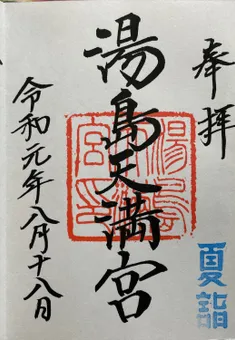 奉拝
湯島天満宮
湯島
宮印
夏詣
令和元年八月十八日